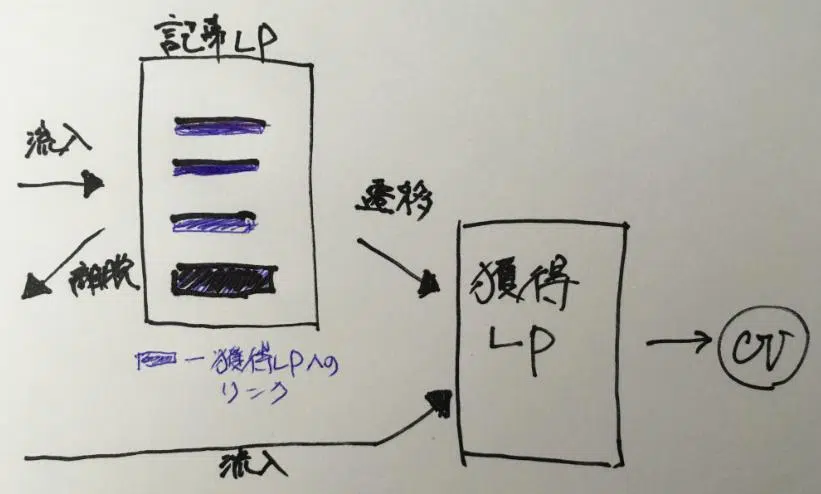 記事LP
流入
遷移
離脱
獲得
LP
CV
ー獲得LPへの
リンク
流入